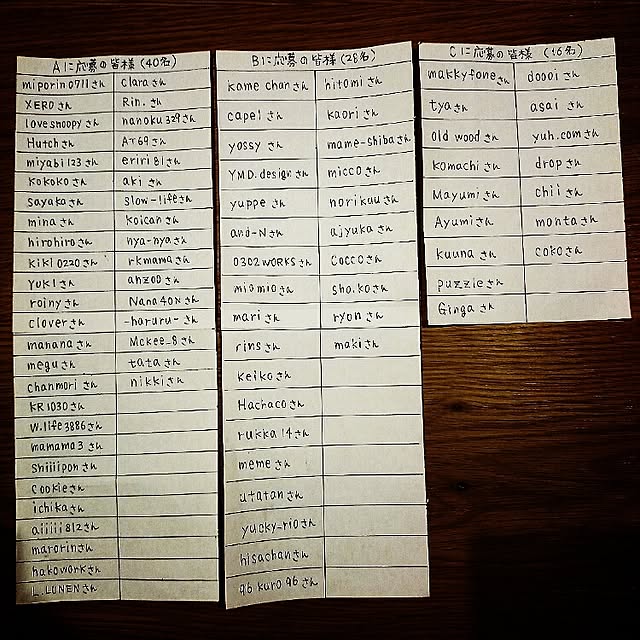 Aに応募の皆様 (40名)
miporin0711さん Clara さん
XEROさん Rin. さん
lovesnoopyさん nanoku329さん
Hutchさん AT69さん
miyabi123さん eriri81さん
kokokoさん aki さん
sayakaさん slow-lifeさん
minaさん koicanさん
hirohiroさん nya-nyaさん
kiki0220さん rkmamaさん
YUKIさん anzooさん
roinyさん Nana40Nさん
cloverさん -haruru-さん
mananaさん Mckee_8さん
meguさん tataさん
chanmoriさん nikkiさん
KR1030さん
W.life3886さん
mamama3さん
shiiiiponさん
cookieさん
ichikaさん
aiiiii812さん
marorinさん
hakoworkさん
L.LUNENさん
Bに応募の皆様 (28名)
kame chanさん hitomiさん
capelさん kaoriさん
yossyさん mame-shibaさん
YMD.designさん miccoさん
yuppeさん norikuuさん
and-Nさん ajyukaさん
0302WORKSさん coccoさん
miomioさん sho.koさん
mariさん ryonさん
rinsさん makiさん
keikoさん
Hachacoさん
rukka14さん
memeさん
utatanさん
yucky-rioさん
hisachanさん
96kuro96さん
Cに応募の皆様 (16名)
makkyfoneさん doooiさん
tyaさん asaiさん
old woodさん yuh.comさん
komachiさん dropさん
Mayumiさん chiiさん
Ayumiさん montaさん
kuunaさん cokoさん
puzzleさん
Gingaさん